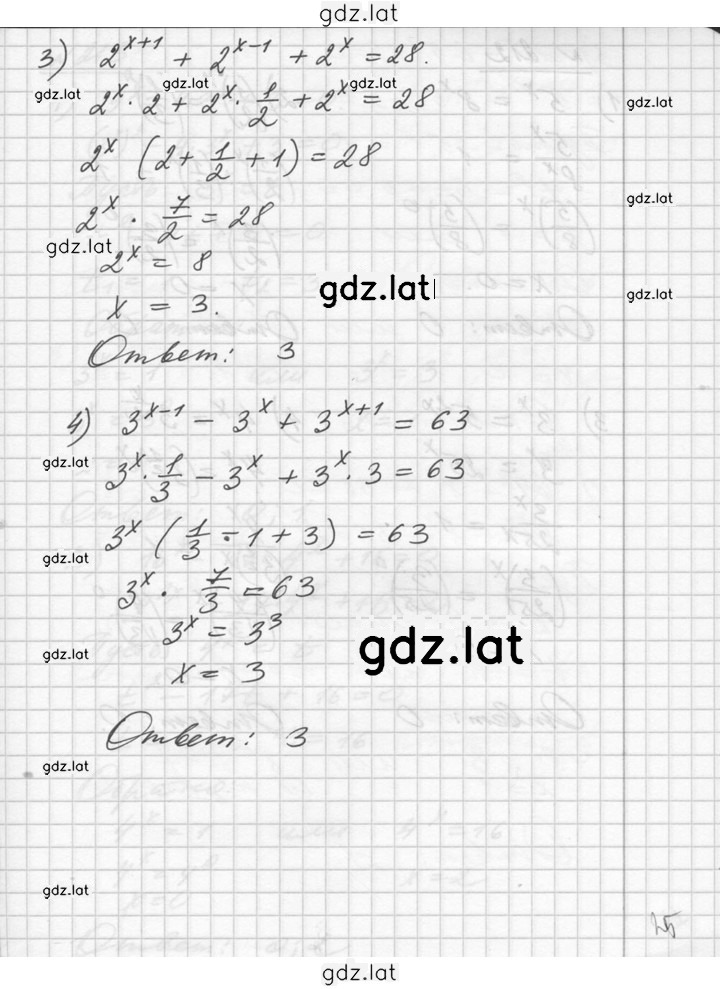 gdz.lat
3) 2^{x+1} + 2^{x-1} + 2^x = 28.
gdz.lat gdz.lat gdz.lat
2^x · 2 + 2^x · 1/2 + 2^x = 28
gdz.lat
2^x (2 + 1/2 + 1) = 28
gdz.lat
2^x · 7/2 = 28
gdz.lat
2^x = 8
gdz.lat gdz.lat
x = 3.
Ответ: 3
4) 3^{x-1} - 3^x + 3^{x+1} = 63
gdz.lat
3^x · 1/3 - 3^x + 3^x · 3 = 63
3^x (1/3 - 1 + 3) = 63
gdz.lat
3^x · 7/3 = 63
3^x = 3^3
gdz.lat gdz.lat
x = 3
Ответ: 3
gdz.lat
gdz.lat
gdz.lat